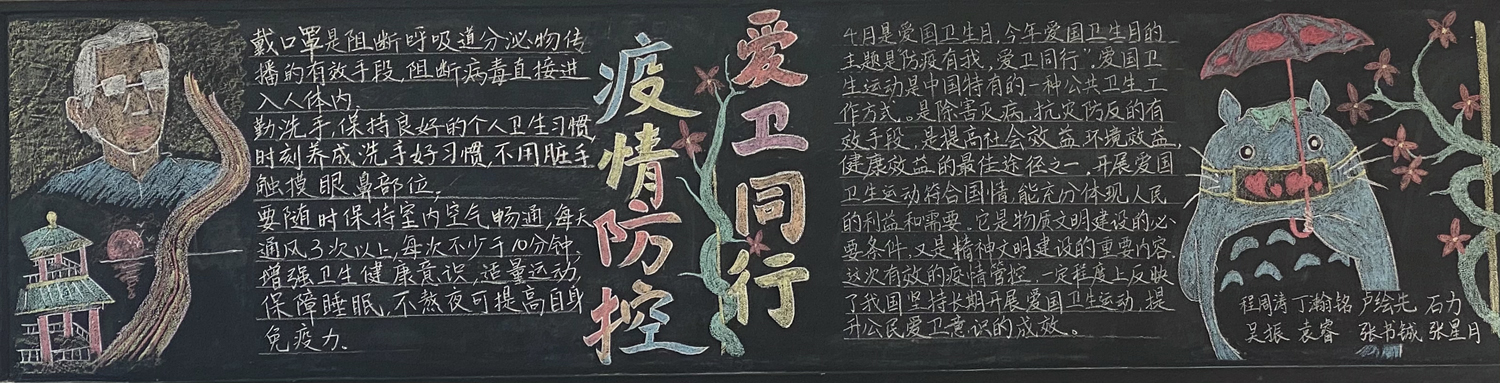 戴口罩是阻断呼吸道分泌物传
播的有效手段,阻断病毒直接进
入人体内.
勤洗手,保持良好的个人卫生习惯,
时刻养成洗手好习惯,不用脏手
触摸眼鼻部位;
要随时保持室内空气畅通,每天
通风3次以上,每次不少于10分钟,
增强卫生健康意识,适量运动,
保障睡眠,不熬夜可提高自身
免疫力.
疫情防控
爱卫同行
4月是爱国卫生月,今年爱国卫生月的
主题是"防疫有我,爱卫同行",爱国卫
生运动是中国特有的一种公共卫生工
作方式。是除害灭病,抗灾防反的有
效手段,是提高社会效益,环境效益,
健康效益的最佳途径之一,开展爱国
卫生运动符合国情,能充分体现人民
的利益和需要。它是物质文明建设的必
要条件,又是精神文明建设的重要内容.
这次有效的疫情管控,一定程度上反映
了我国坚持长期开展爱国卫生运动,提
升公民爱卫意识的成效。
程周涛 丁瀚铭 卢绘先 石力
吴振 袁睿 张书铖 张星月